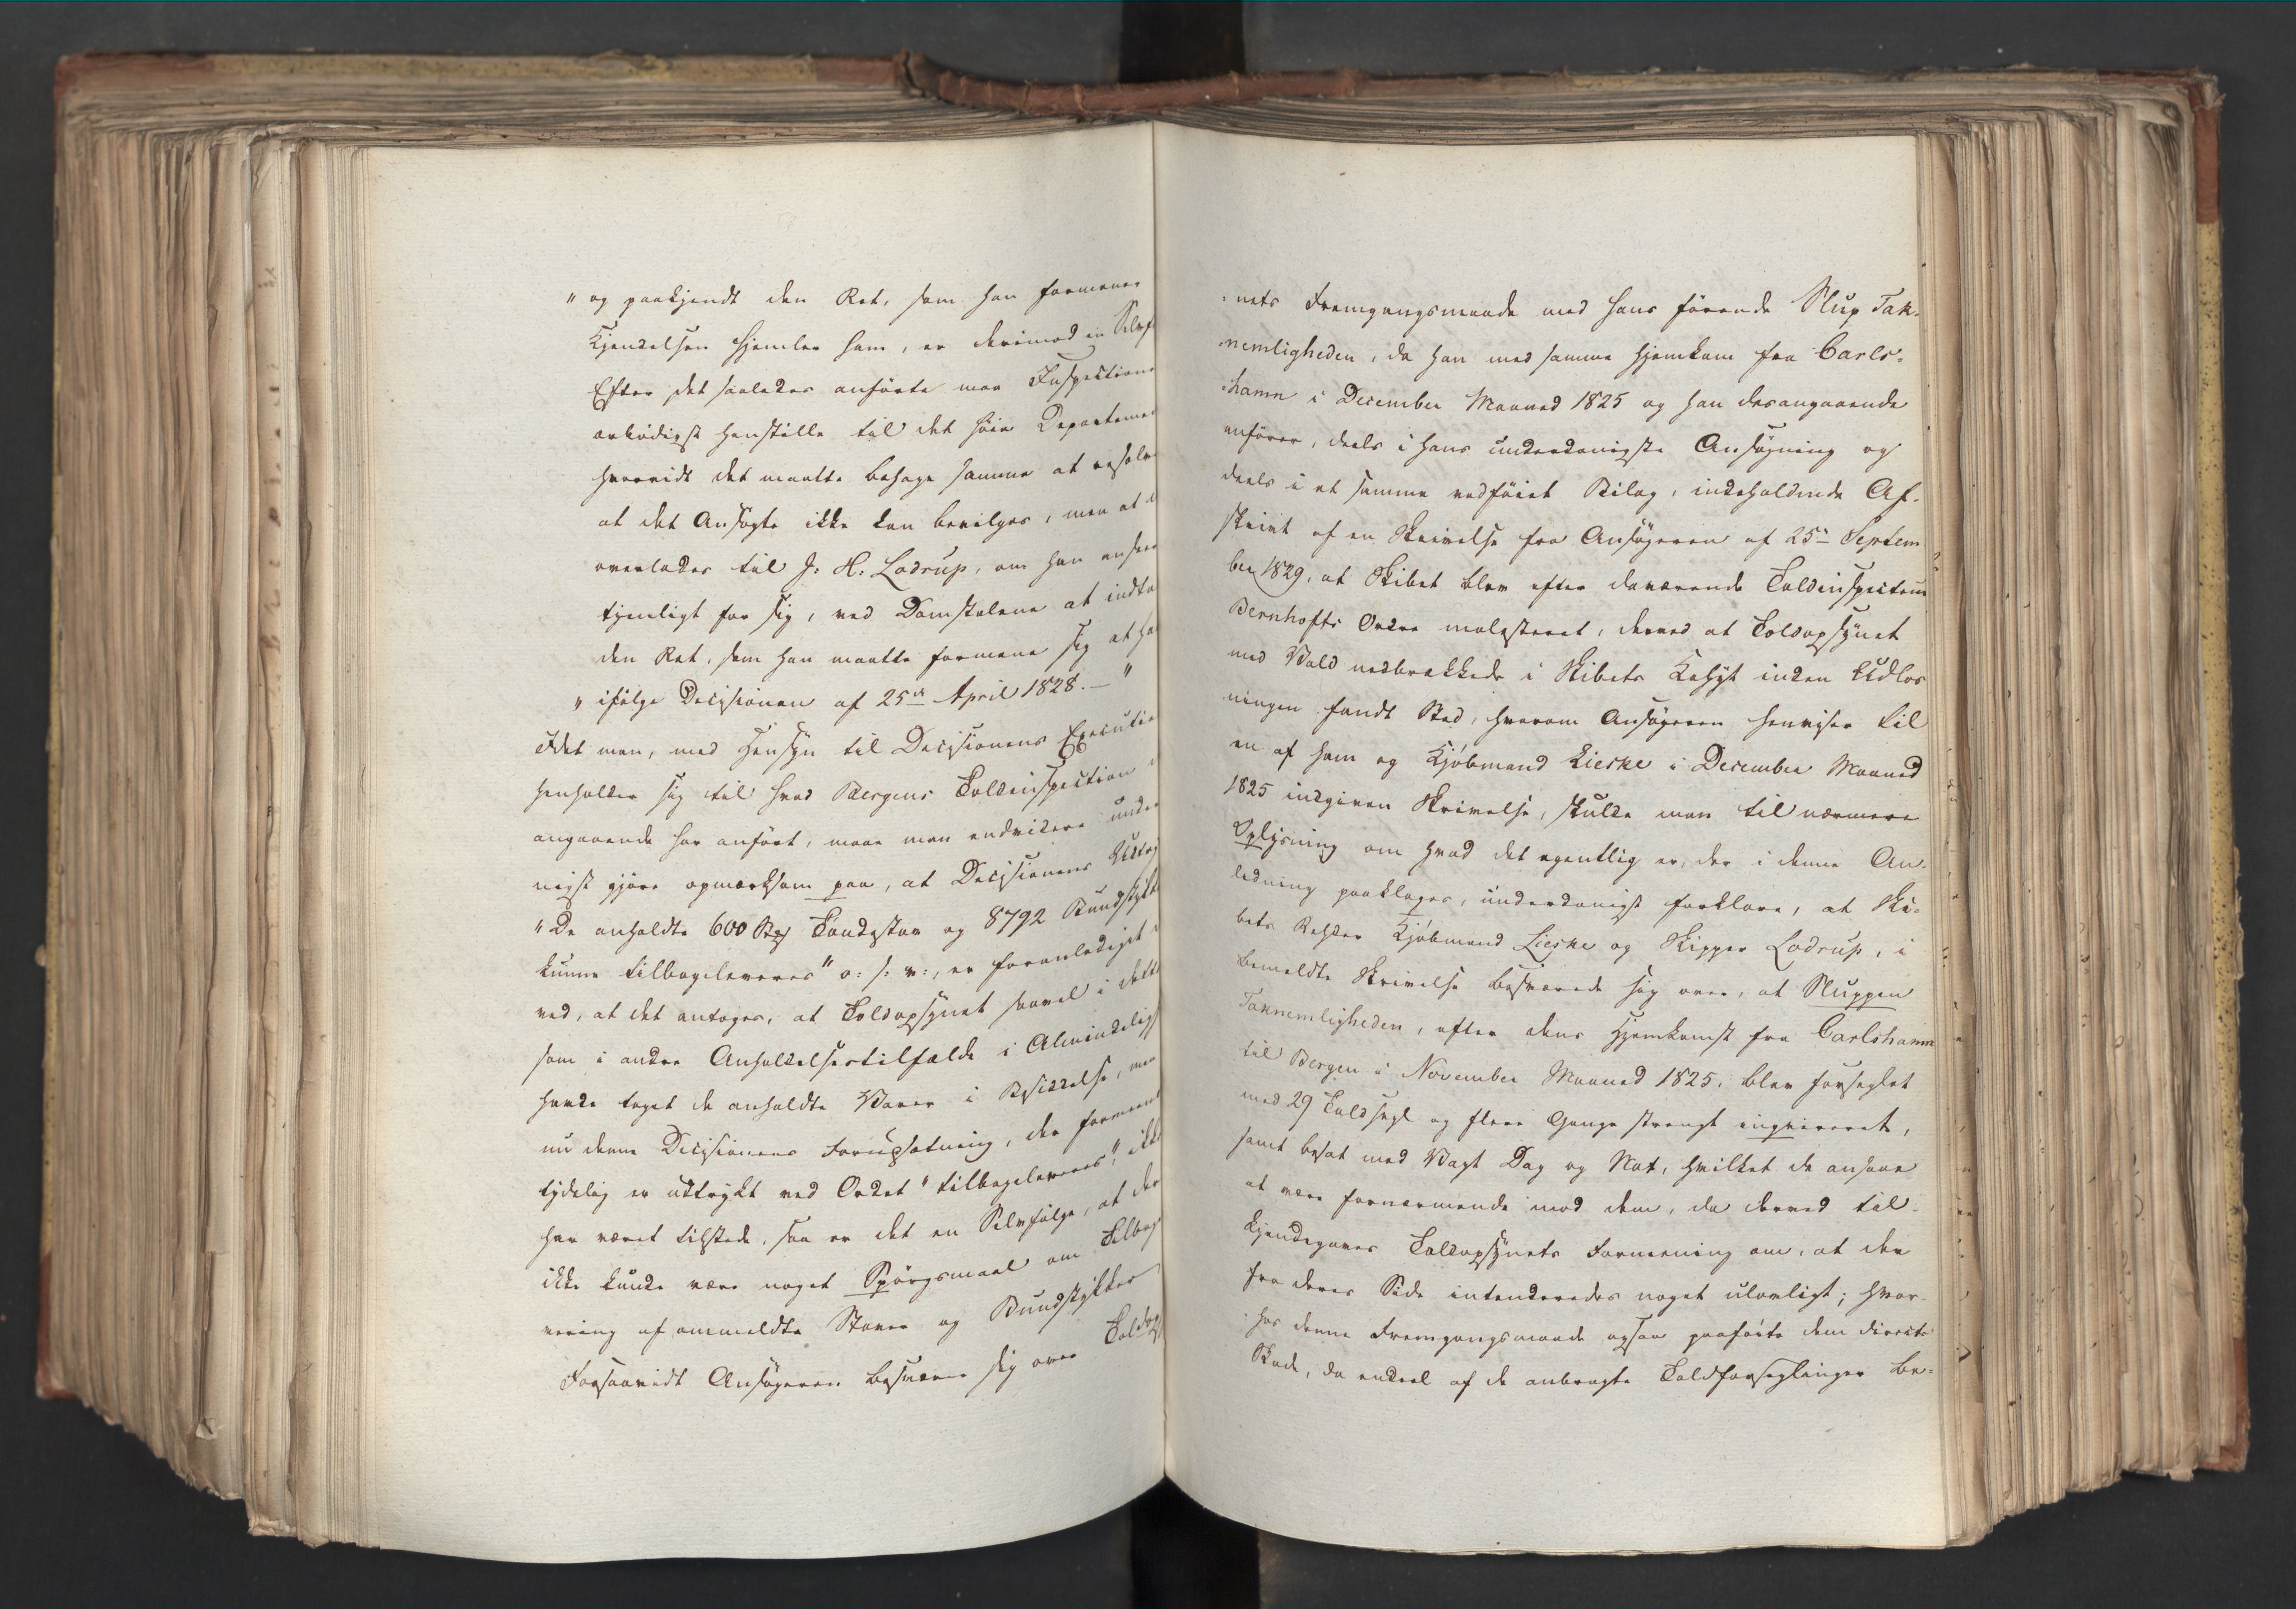 " og paakjendt den Ret, som han formener
Kjendelsen hjemler ham, er derimod en Selvf
Efter det saaledes anførte maa Inspectione
ærbødigst henstille til det høie Departemen
hvorvidt det maatte behage samme at resolv
at det Ansøgte ikke kan bevilges, men at d
overlades til J: H: Lodrup, om han anseer
tjenligt for sig, ved Domstolene at indta
den Ret, som han maatte formene sig at ha
" ifølge Decisionen af 25de April 1828. — "
Idet man, med Hensyn til Decisionens Executio
henholder sig til hvad Bergens Toldinspection
angaaende har anført, maae man endvidere under
nigst gjøre opmærksom paa, at Decisionens Udtry
" De anholdte 600 Stk Tøndestav og 8792 Bundstykk
kunne tilbageleveres" o: s: v:, er foranlediget
ved, at det antoges, at Toldopsynet saavel i dette
som i andre Anholdelsestilfælde i Almindeligh
havde taget de anholdte Varer i Besiddelse, men
nu denne Decisionens Forudsætning, der formeent
tydelig er udtrykt ved Ordet "tilbageleveres", ikke
har været tilstede, saa er det en Selvfølge, at der
ikke kunde være noget Spørgsmaal om Tilbage
vering af ommeldte Staver og Bundstykker
Forsaavidt Ansøgeren besværer sig over Toldops
=nets Fremgangsmaade med hans førende Slup Tak-
nemligheden, da han med samme hjemkom fra Carls=
=hamn i December Maaned 1825 og han desangaaende
anfører, deels i hans underdanigste Ansøgning og
deels i et samme vedføiet Bilag, indeholdende Af-
skrivt af en Skrivelse fra Ansøgeren af 25de Septem
ber 1829, at Skibet blev efter daværende Toldinspecteur
Bernhofts Ordre molesteret, derved at Toldopsynet
med Vold nedbrækkede i Skibets Kahyt inden Udlos
ningen fandt Sted, hvorom Ansøgeren henviser til
en af ham og Kjøbmand Lieske i December Maaned
1825 indgiven Skrivelse, skulde man til nærmere
Oplysning om hvad det egentlig er, der i denne An-
ledning paaklages, underdanigst forklare, at Ski=
bets Rehder Kjøbmand Lieske og Skipper Lodrup, i
bemeldte Skrivelse besværede sig over, at Sluppen
Taknemligheden, efter dens Hjemkomst fra Carlshamn
til Bergen i November Maaned 1825, blev forseglet
med 29 Toldsegl og flere Gange strengt inqvireret,
samt besat med Vagt Dag og Nat, hvilket de ansaae
at være fornærmende mod dem, da derved til-
kjendegaves Toldopsynets Formening om, at der
fra deres Side intenderedes noget ulovligt; hvor-
:hos denne Fremgangsmaade ogsaa paaførte dem directe
Skade, da endeel af de anbragte Toldforseglinger be=